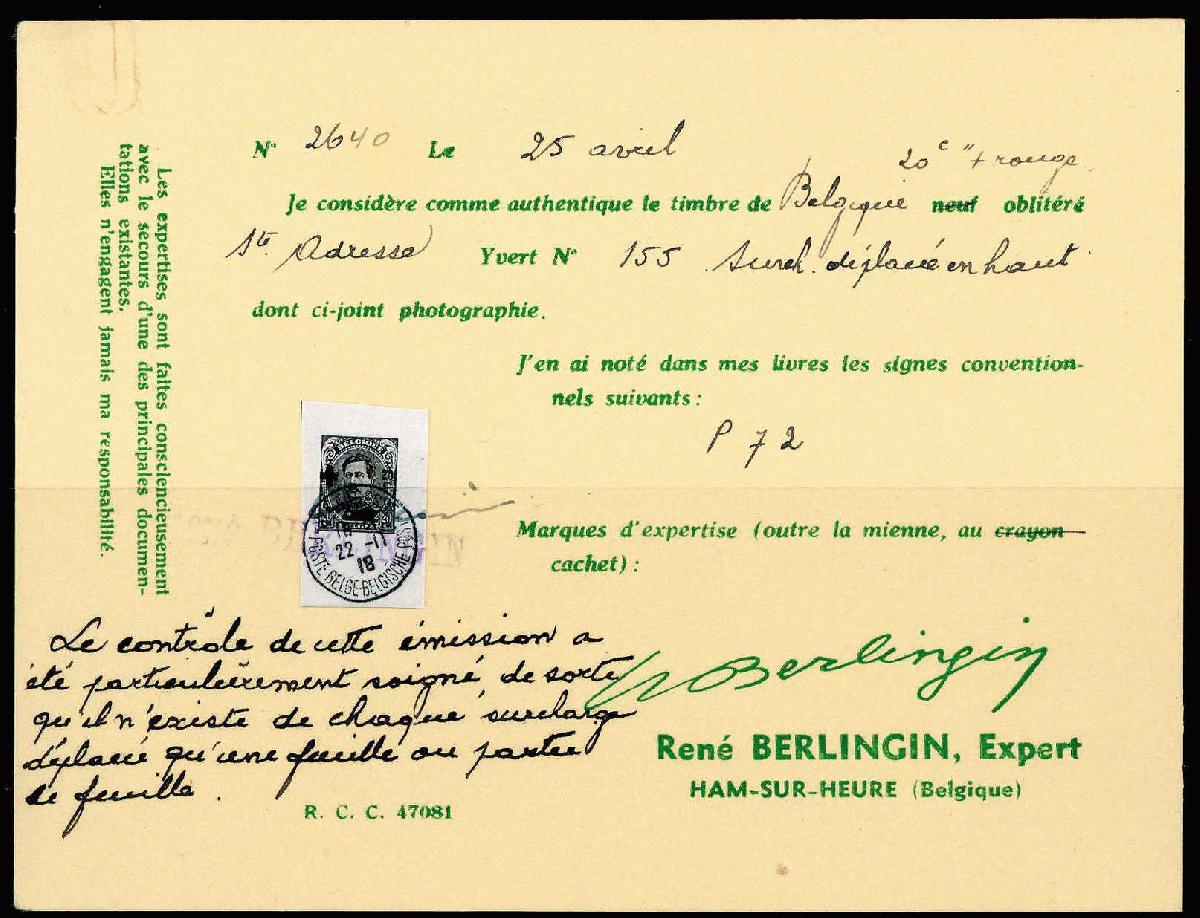 N° 2640 Le 25 avril
20c " + rouge
Je considère comme authentique le timbre de Belgique neuf oblitéré
Ste Adresse Yvert N° 155 Surch. déplacée en haut
dont ci-joint photographie.
J'en ai noté dans mes livres les signes convention-
nels suivants:
P 72
Marques d'expertise (outre la mienne, au crayon
cachet):
Les expertises sont faites consciencieusement
avec le secours d'une des principales documen-
tations existantes.
Elles n'engagent jamais ma responsabilité.
BELGIQUE
22 -11
18
POSTE BELGE-BELGISCHE POST
BERLINGIN
Le contrôle de cette émission a
été particulièrement soigné de sorte
qu'il n'existe de chaque surcharge
déplacée qu'une feuille ou partie
de feuille.
Berlingin
René BERLINGIN, Expert
HAM-SUR-HEURE (Belgique)
R. C. C. 47081